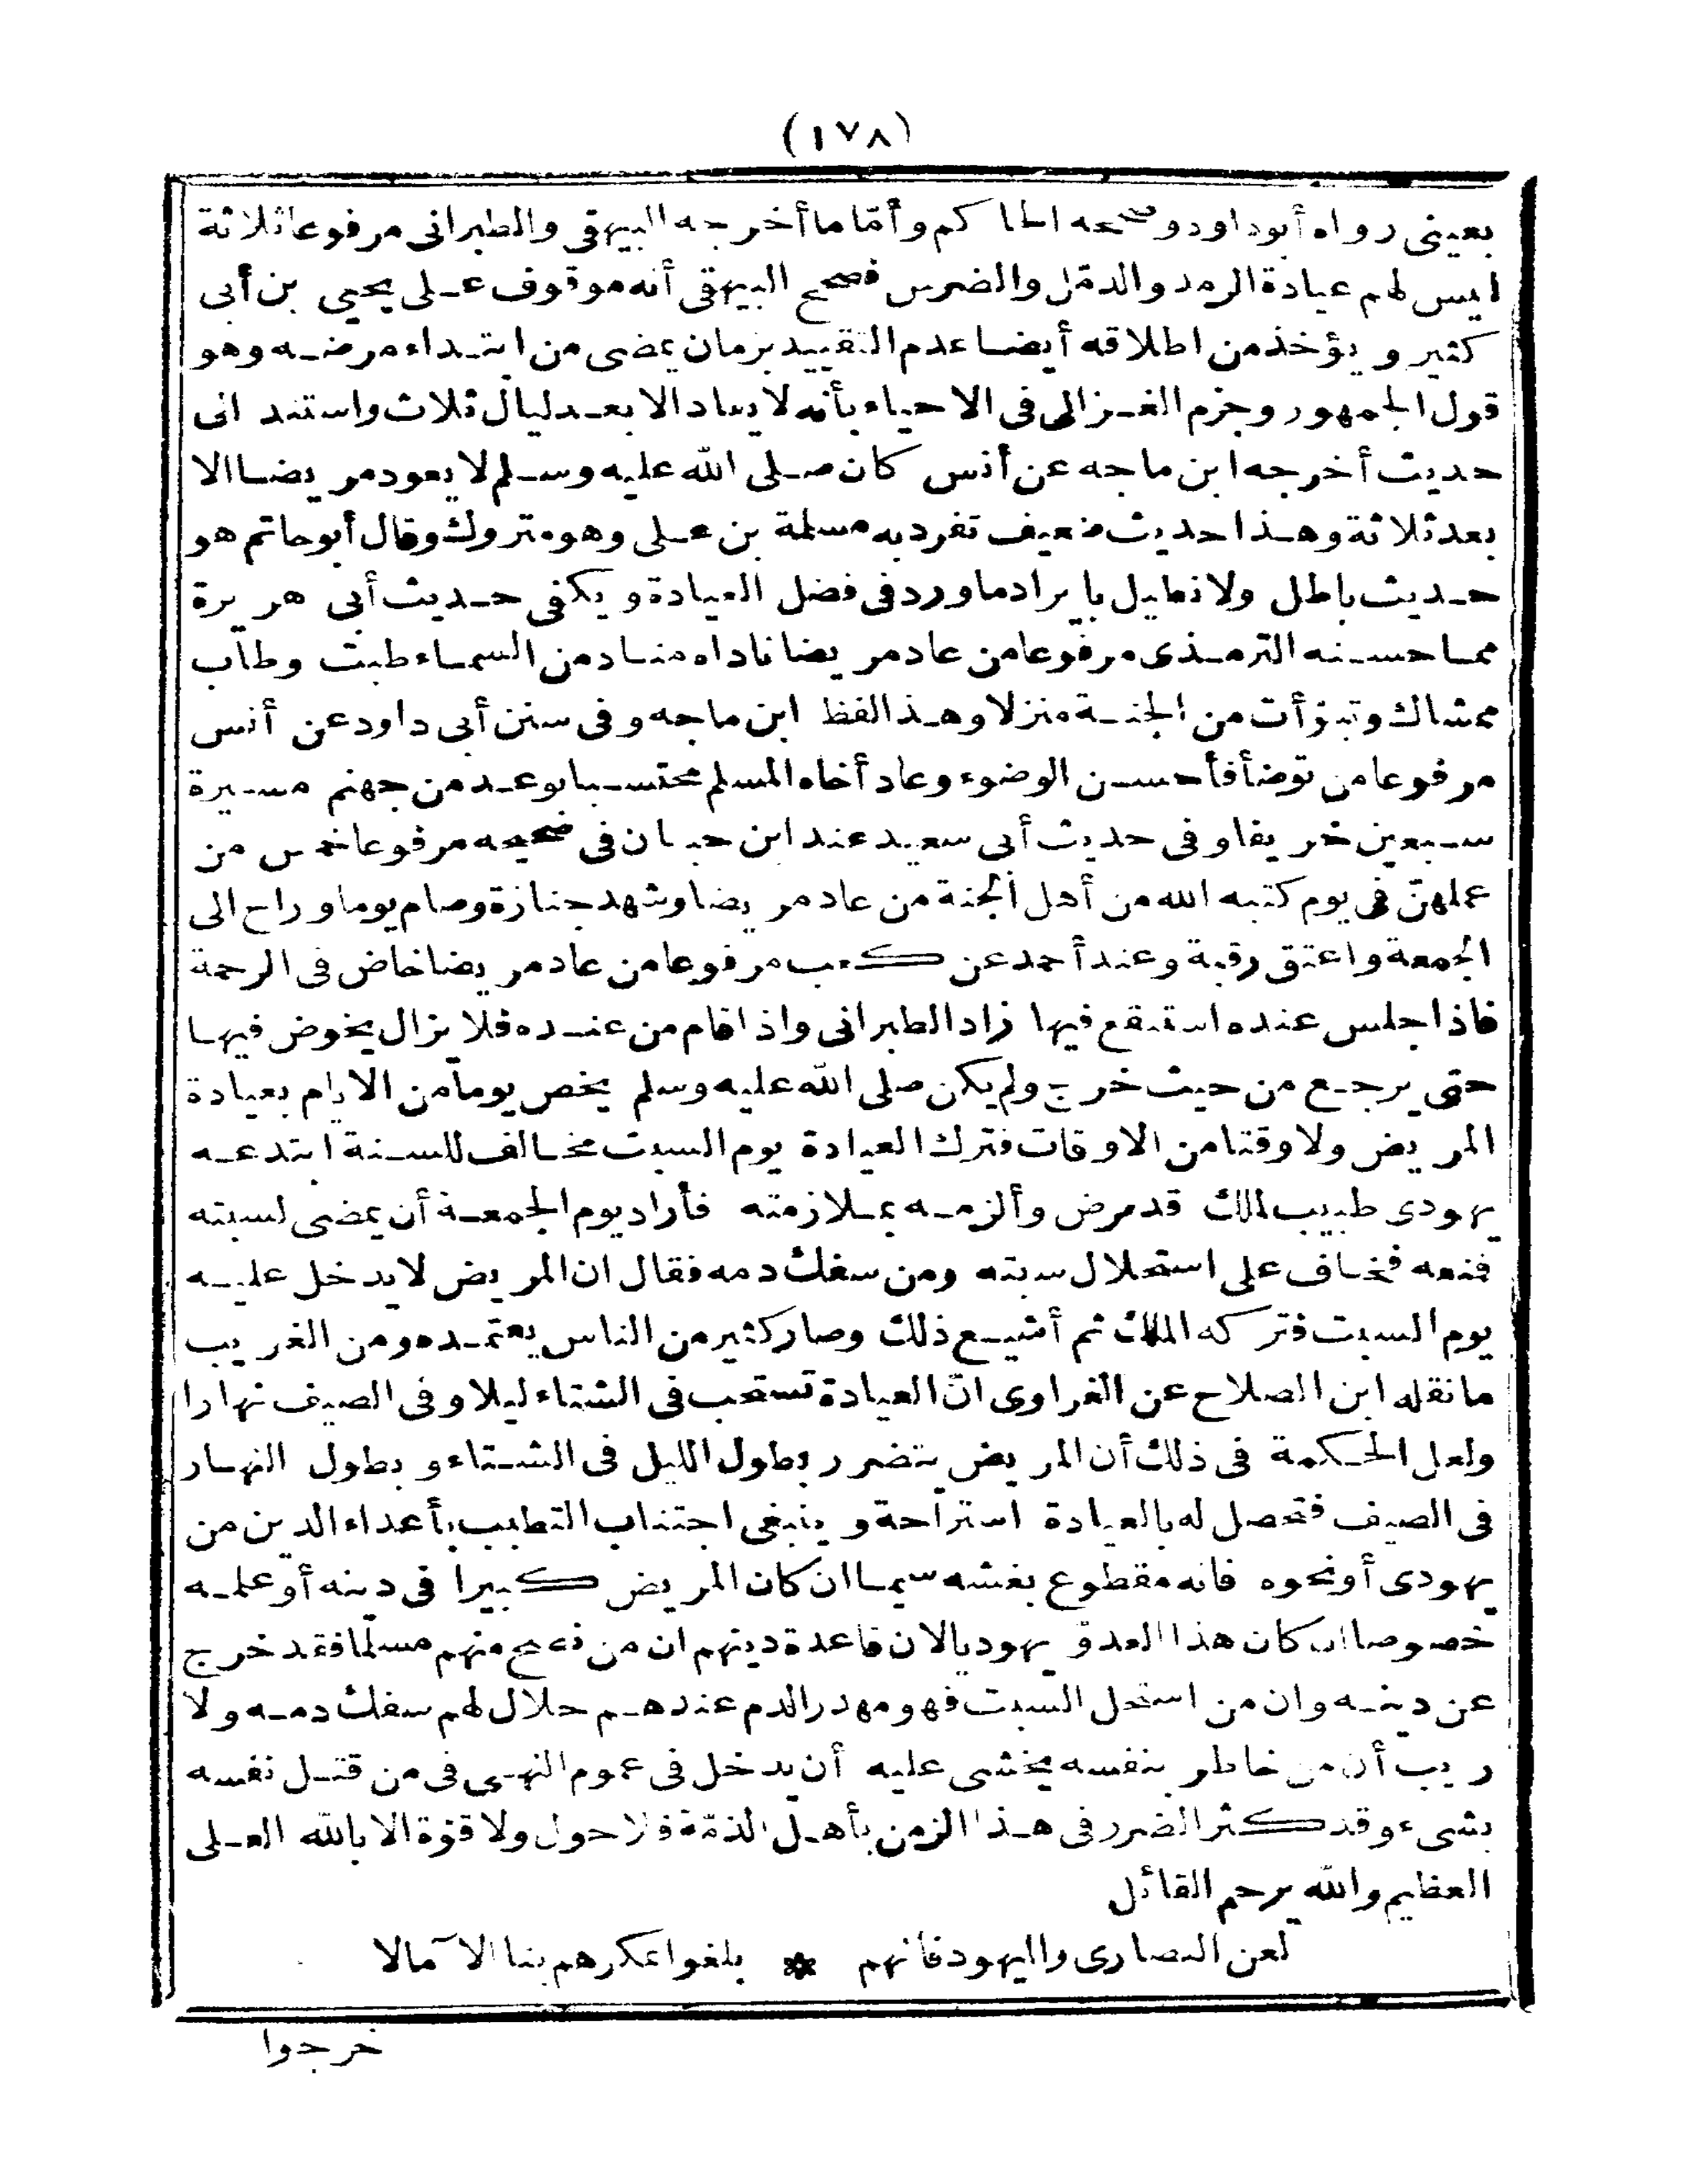 (١٧٨)
بعينى رواه أبوداود وصححه الحاكم وأمّا ما أخرجه البيهقى والطبرانى مرفوعا ثلاثة
ليس لهم عيادة الرمد والدمّل والضرس فصحح البيهقى أنه موقوف على يحيى بن أبى
كثير ويؤخذ من اطلاقه أيضا عدم التقييد بزمان يمضى من ابتداء مرضه وهو
قول الجمهور وجزم الغزالى فى الاحياء بأنه لا يعاد الا بعد ليال ثلاث واستند الى
حديث أخرجه ابن ماجه عن أنس كان صلى الله عليه وسلم لا يعود مريضا الا
بعد ثلاثة وهذا حديث ضعيف تفرد به مسلمة بن على وهو متروك وقال أبوحاتم هو
حديث باطل ولا نطيل بايراد ما ورد فى فضل العيادة ويكفى حديث أبى هريرة
مما حسنه الترمذى مرفوعا من عاد مريضا ناداه مناد من السماء طبت وطاب
ممشاك وتبوّأت من الجنة منزلا وهذا لفظ ابن ماجه وفى سنن أبى داود عن أنس
مرفوعا من توضأ فأحسن الوضوء وعاد أخاه المسلم محتسبا بوعد من جهنم مسيرة
سبعين خريفا وفى حديث أبى سعيد عند ابن حبان فى صحيحه مرفوعا خمس من
عملهنّ فى يوم كتبه الله من أهل الجنة من عاد مريضا وشهد جنازة وصام يوما وراح الى
الجمعة واعتق رقبة وعند أحمد عن كعب مرفوعا من عاد مريضا خاض فى الرحمة
فاذا جلس عنده استنقع فيها زاد الطبرانى واذا قام من عنده فلا يزال يخوض فيها
حتى يرجع من حيث خرج ولم يكن صلى الله عليه وسلم يخص يوما من الايام بعيادة
المريض ولا وقتا من الاوقات فترك العيادة يوم السبت مخالف للسنة ابتدعه
يهودى طبيب لملك قد مرض وألزمه بملازمته فأراد يوم الجمعة أن يمضى لسبته
فمنعه فخاف على استحلال سبته ومن سفك دمه فقال ان المريض لا يدخل عليه
يوم السبت فتركه الملك ثم أشيع ذلك وصار كثير من الناس يعتمده ومن الغريب
ما نقله ابن الصلاح عن الفراوى انّ العيادة تستحب فى الشتاء ليلا وفى الصيف نهارا
ولعل الحكمة فى ذلك أن المريض يتضرر بطول الليل فى الشتاء وبطول النهار
فى الصيف فتحصل له بالعيادة استراحة وينبغى اجتناب التطبب بأعداء الدين من
يهودى أو نحوه فانه مقطوع بغشه سيما ان كان المريض كبيرا فى دينه أو علمه
خصوصا ان كان هذا العدوّ يهوديا لان قاعدة دينهم ان من نصح منهم مسلما فقد خرج
عن دينه وان من استحل السبت فهو مهدر الدم عندهم حلال لهم سفك دمه ولا
ريب أن من خاطر بنفسه يخشى عليه أن يدخل فى عموم النهى فى من قتل نفسه
بشىء وقد كثر الضرر فى هذا الزمن بأهل الذمّة فلا حول ولا قوّة الا بالله العلى
العظيم والله يرحم القائل
لعن النصارى واليهود فانهم * بلغوا بمكرهم بنا الآمالا
خرجوا